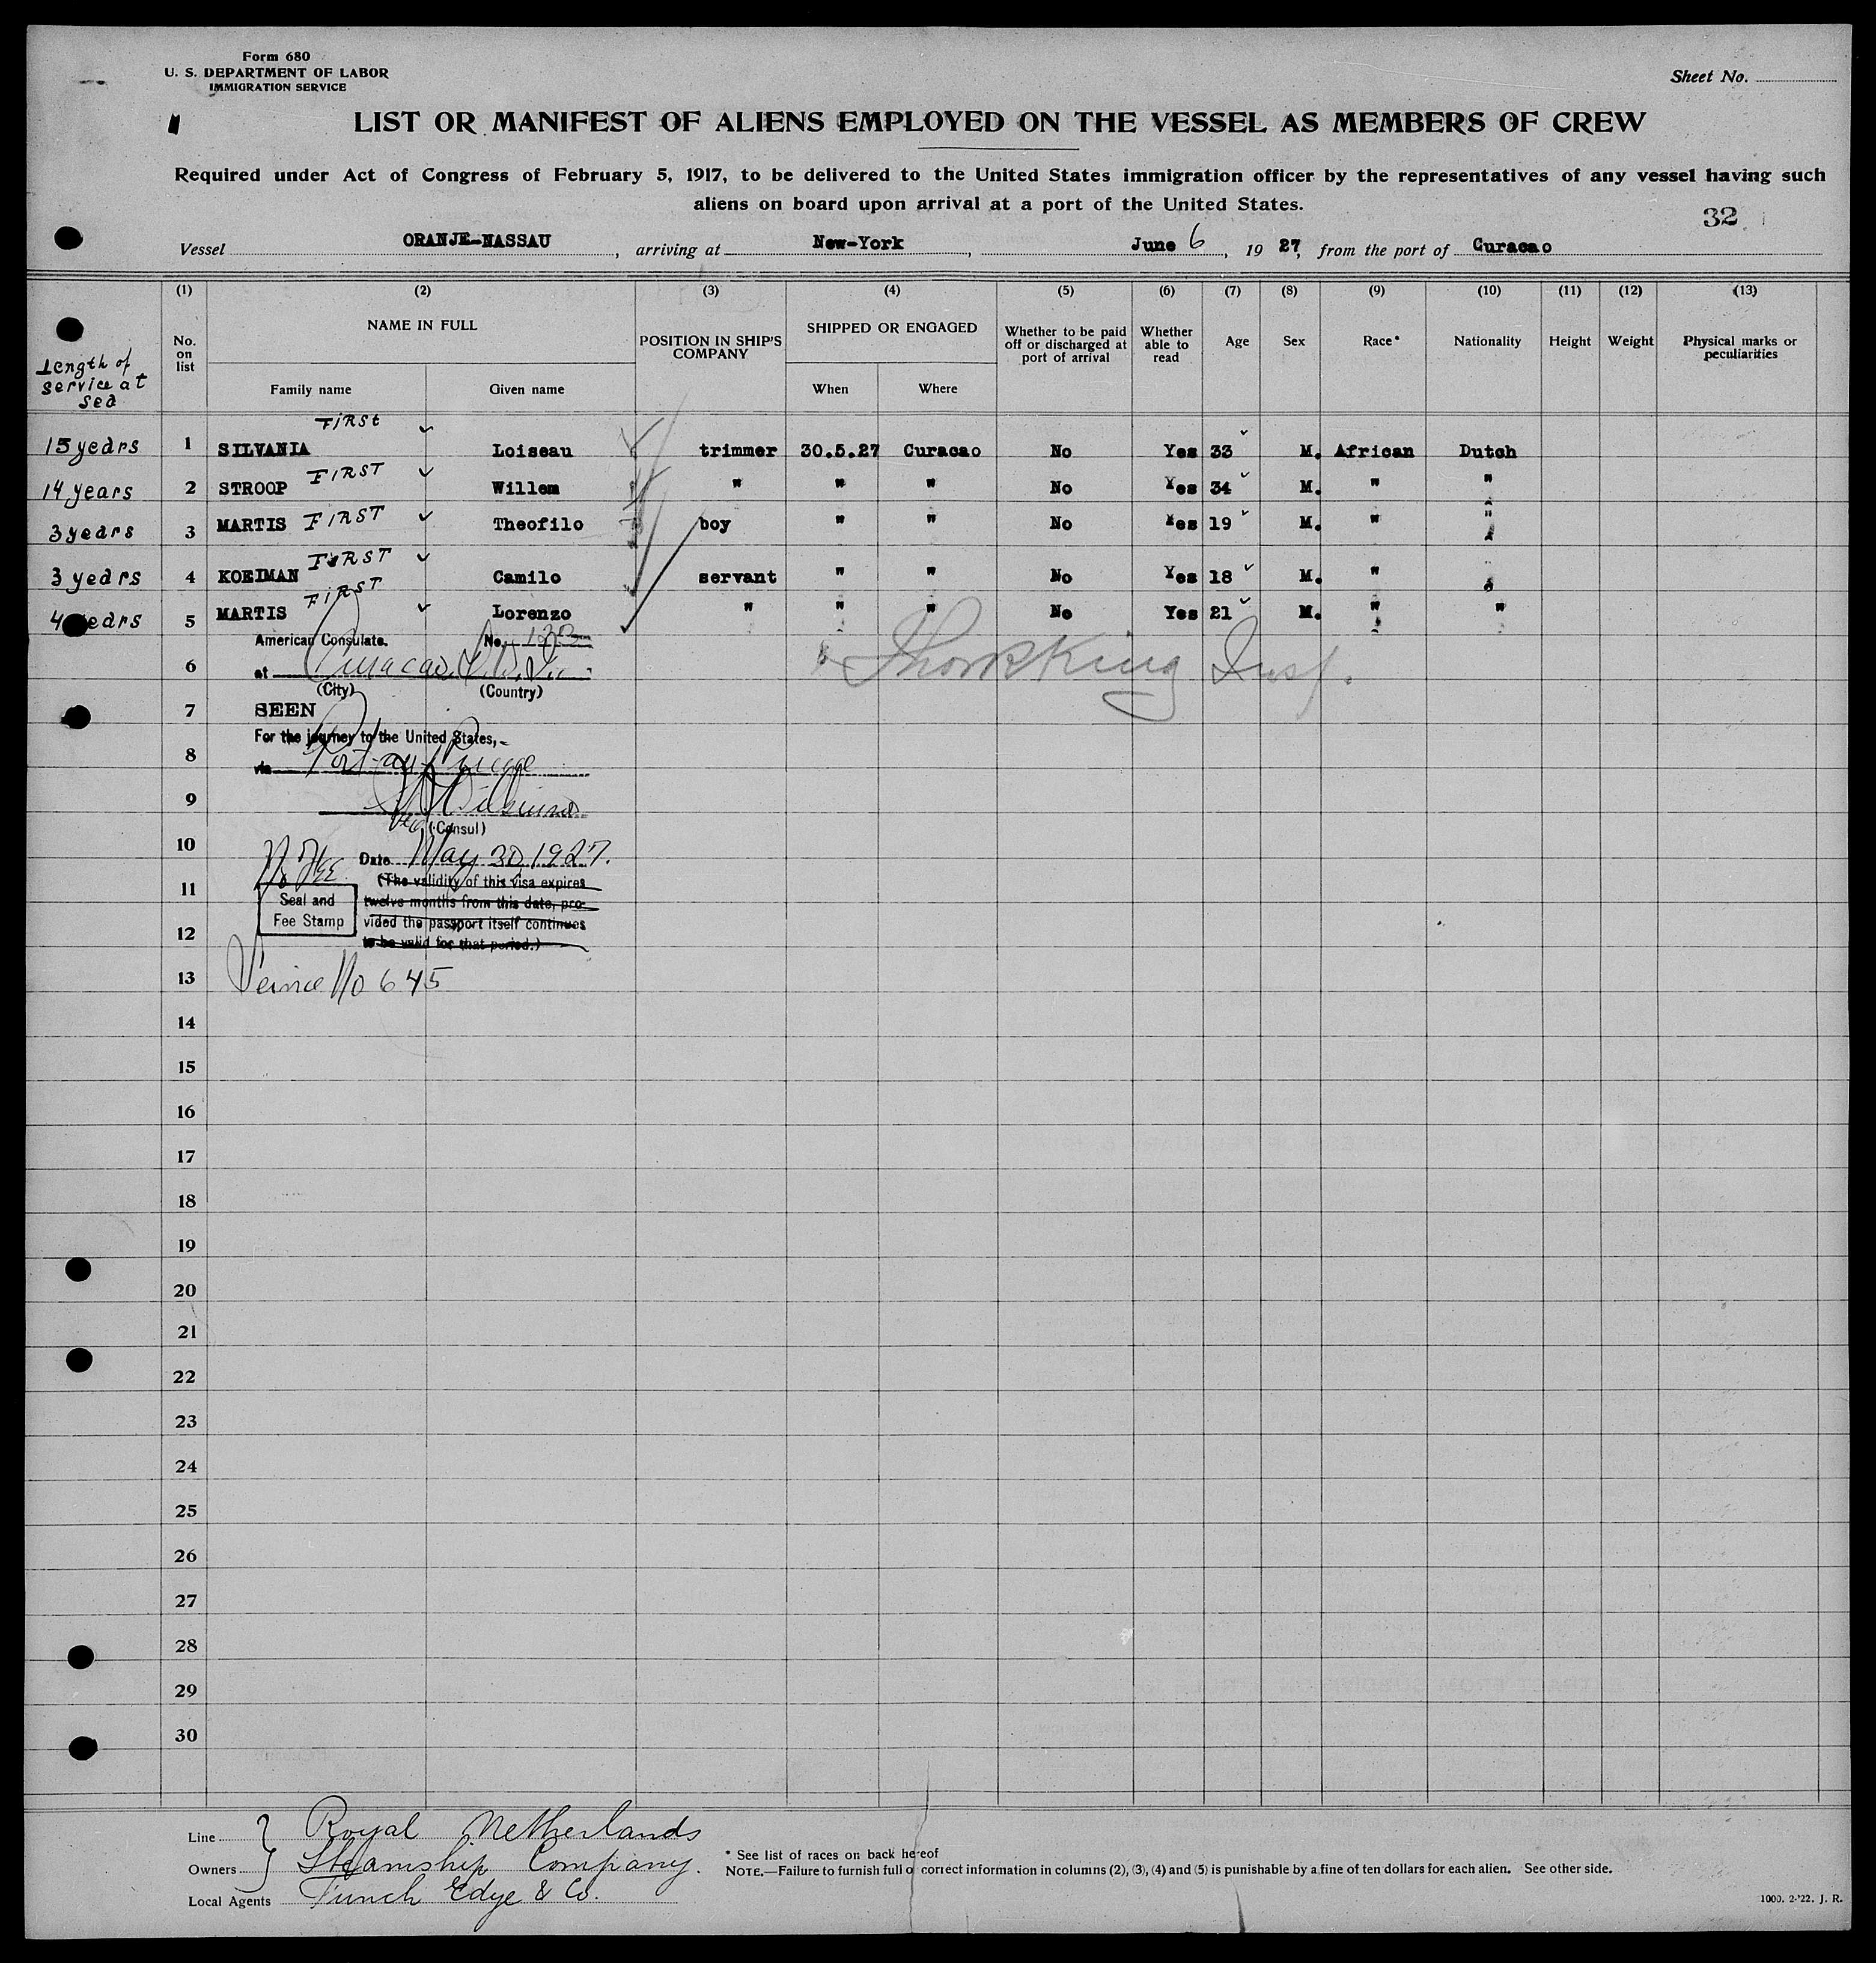 Form 680
U. S. DEPARTMENT OF LABOR
IMMIGRATION SERVICE
Sheet No.
LIST OR MANIFEST OF ALIENS EMPLOYED ON THE VESSEL AS MEMBERS OF CREW
Required under Act of Congress of February 5, 1917, to be delivered to the United States immigration officer by the representatives of any vessel having such
aliens on board upon arrival at a port of the United States.
32
Vessel ORANJE-NASSAU, arriving at New-York, June 6, 19 27, from the port of Curacao
(1) (2) (3) (4) (5) (6) (7) (8) (9) (10) (11) (12) (13)
Length of service at sea
No. on list
NAME IN FULL
Family name
Given name
POSITION IN SHIP'S COMPANY
SHIPPED OR ENGAGED
When
Where
Whether to be paid off or discharged at port of arrival
Whether able to read
Age
Sex
Race*
Nationality
Height
Weight
Physical marks or peculiarities
15 years 1 SILVANIA FIRST Loiseau trimmer 30.5.27 Curacao No Yes 33 M. African Dutch
14 years 2 STROOP FIRST Willem " " " No Yes 34 M. " "
3 years 3 MARTIS FIRST Theofilo boy " " No Yes 19 M. " "
3 years 4 KOEIMAN FIRST Camilo servant " " No Yes 18 M. " "
4 years 5 MARTIS FIRST Lorenzo " " " No Yes 21 M. " "
American Consulate. No.
6 at Curacao
(City) (Country)
Insp.
7 SEEN
For the journey to the United States,
8 via
9
(Consul)
10 No Fee Date May 30, 1927.
11 (The validity of this visa expires
Seal and Fee Stamp
twelve months from this date, pro-
12 vided the passport itself continues
to be valid for that period.)
13 Service No 645
14
15
16
17
18
19
20
21
22
23
24
25
26
27
28
29
30
Line Royal Netherlands
Owners Steamship Company.
Local Agents Funch Edye & Co.
* See list of races on back hereof
NOTE.—Failure to furnish full or correct information in columns (2), (3), (4) and (5) is punishable by a fine of ten dollars for each alien. See other side.
1000. 2-'22. J. R.